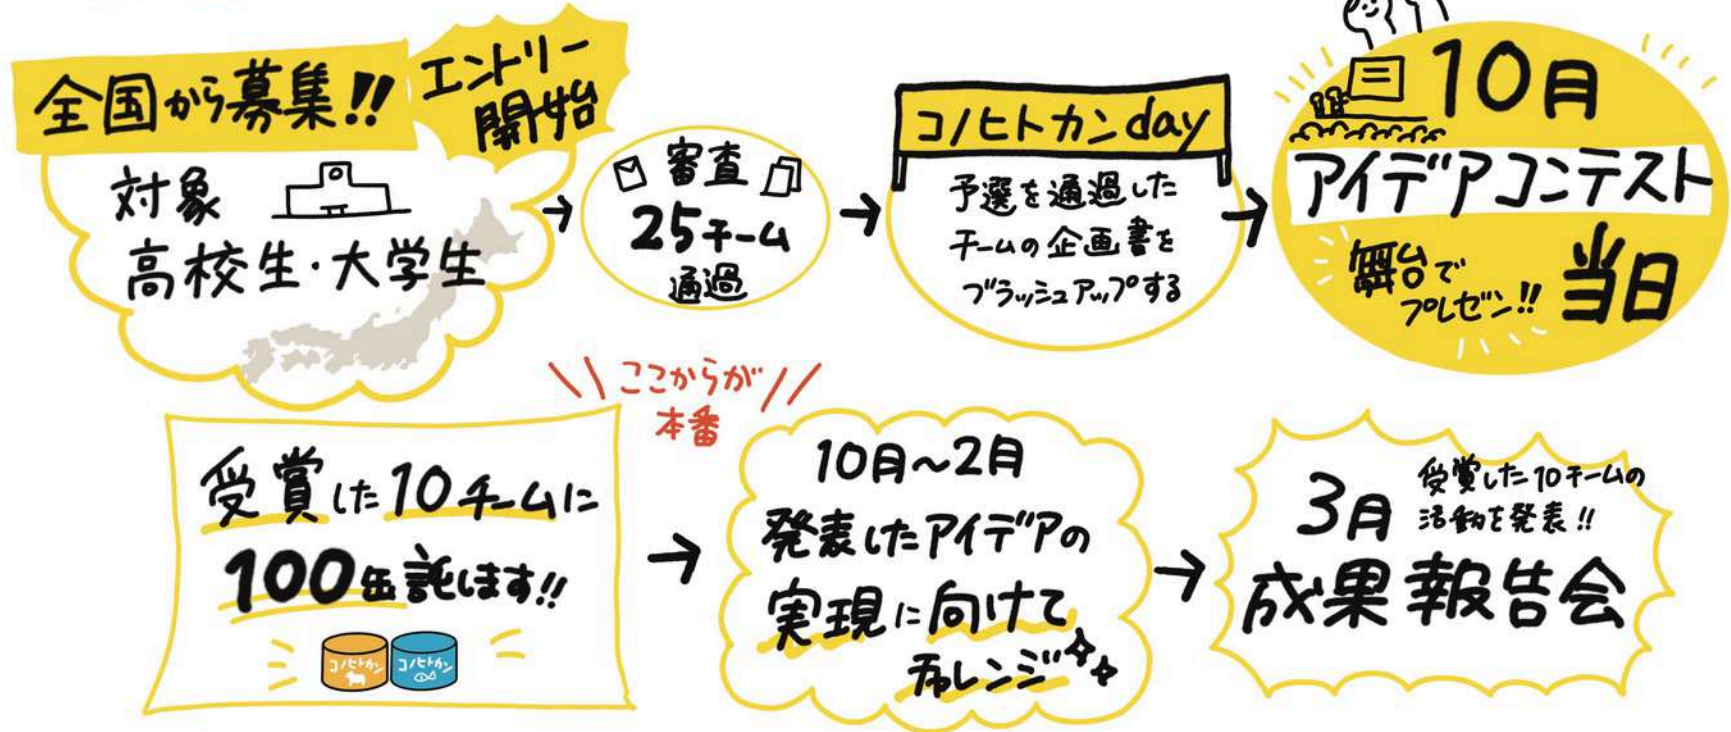 全国から募集!!
エントリー
開始
対象
高校生・大学生
審査
25チーム
通過
コノヒトカンday
予選を通過した
チームの企画書を
ブラッシュアップする
10月
アイデアコンテスト
舞台で
プレゼン!!
当日
ここからが
本番
受賞した10チームに
100缶託します!!
コノヒトカン
コノヒトカン
10月~2月
発表したアイデアの
実現に向けて
チャレンジ
3月
受賞した10チームの
活動を発表!!
成果報告会